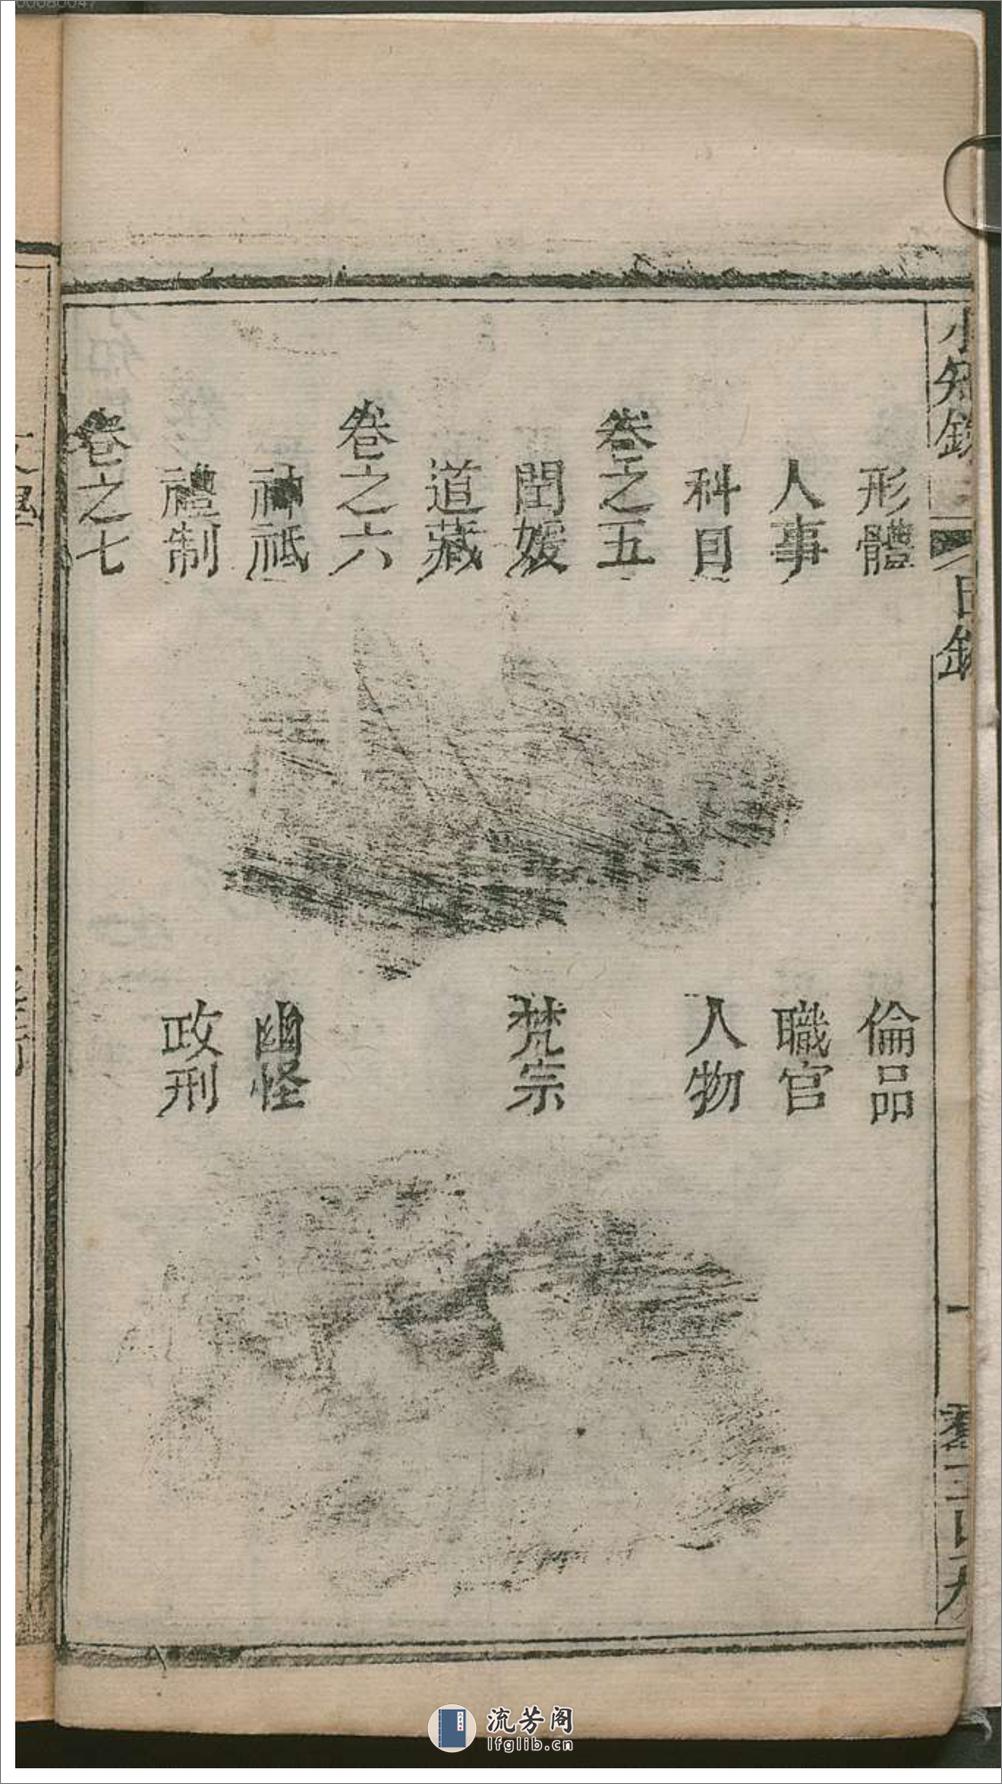 形體　倫品
人事　職官
科目　人物
卷之五
閨媛　梵宗
道藏
卷之六
神祇　幽怪
禮制　政刑
卷之七
小知錄
目錄
一
流芳阁
lfglib.cn